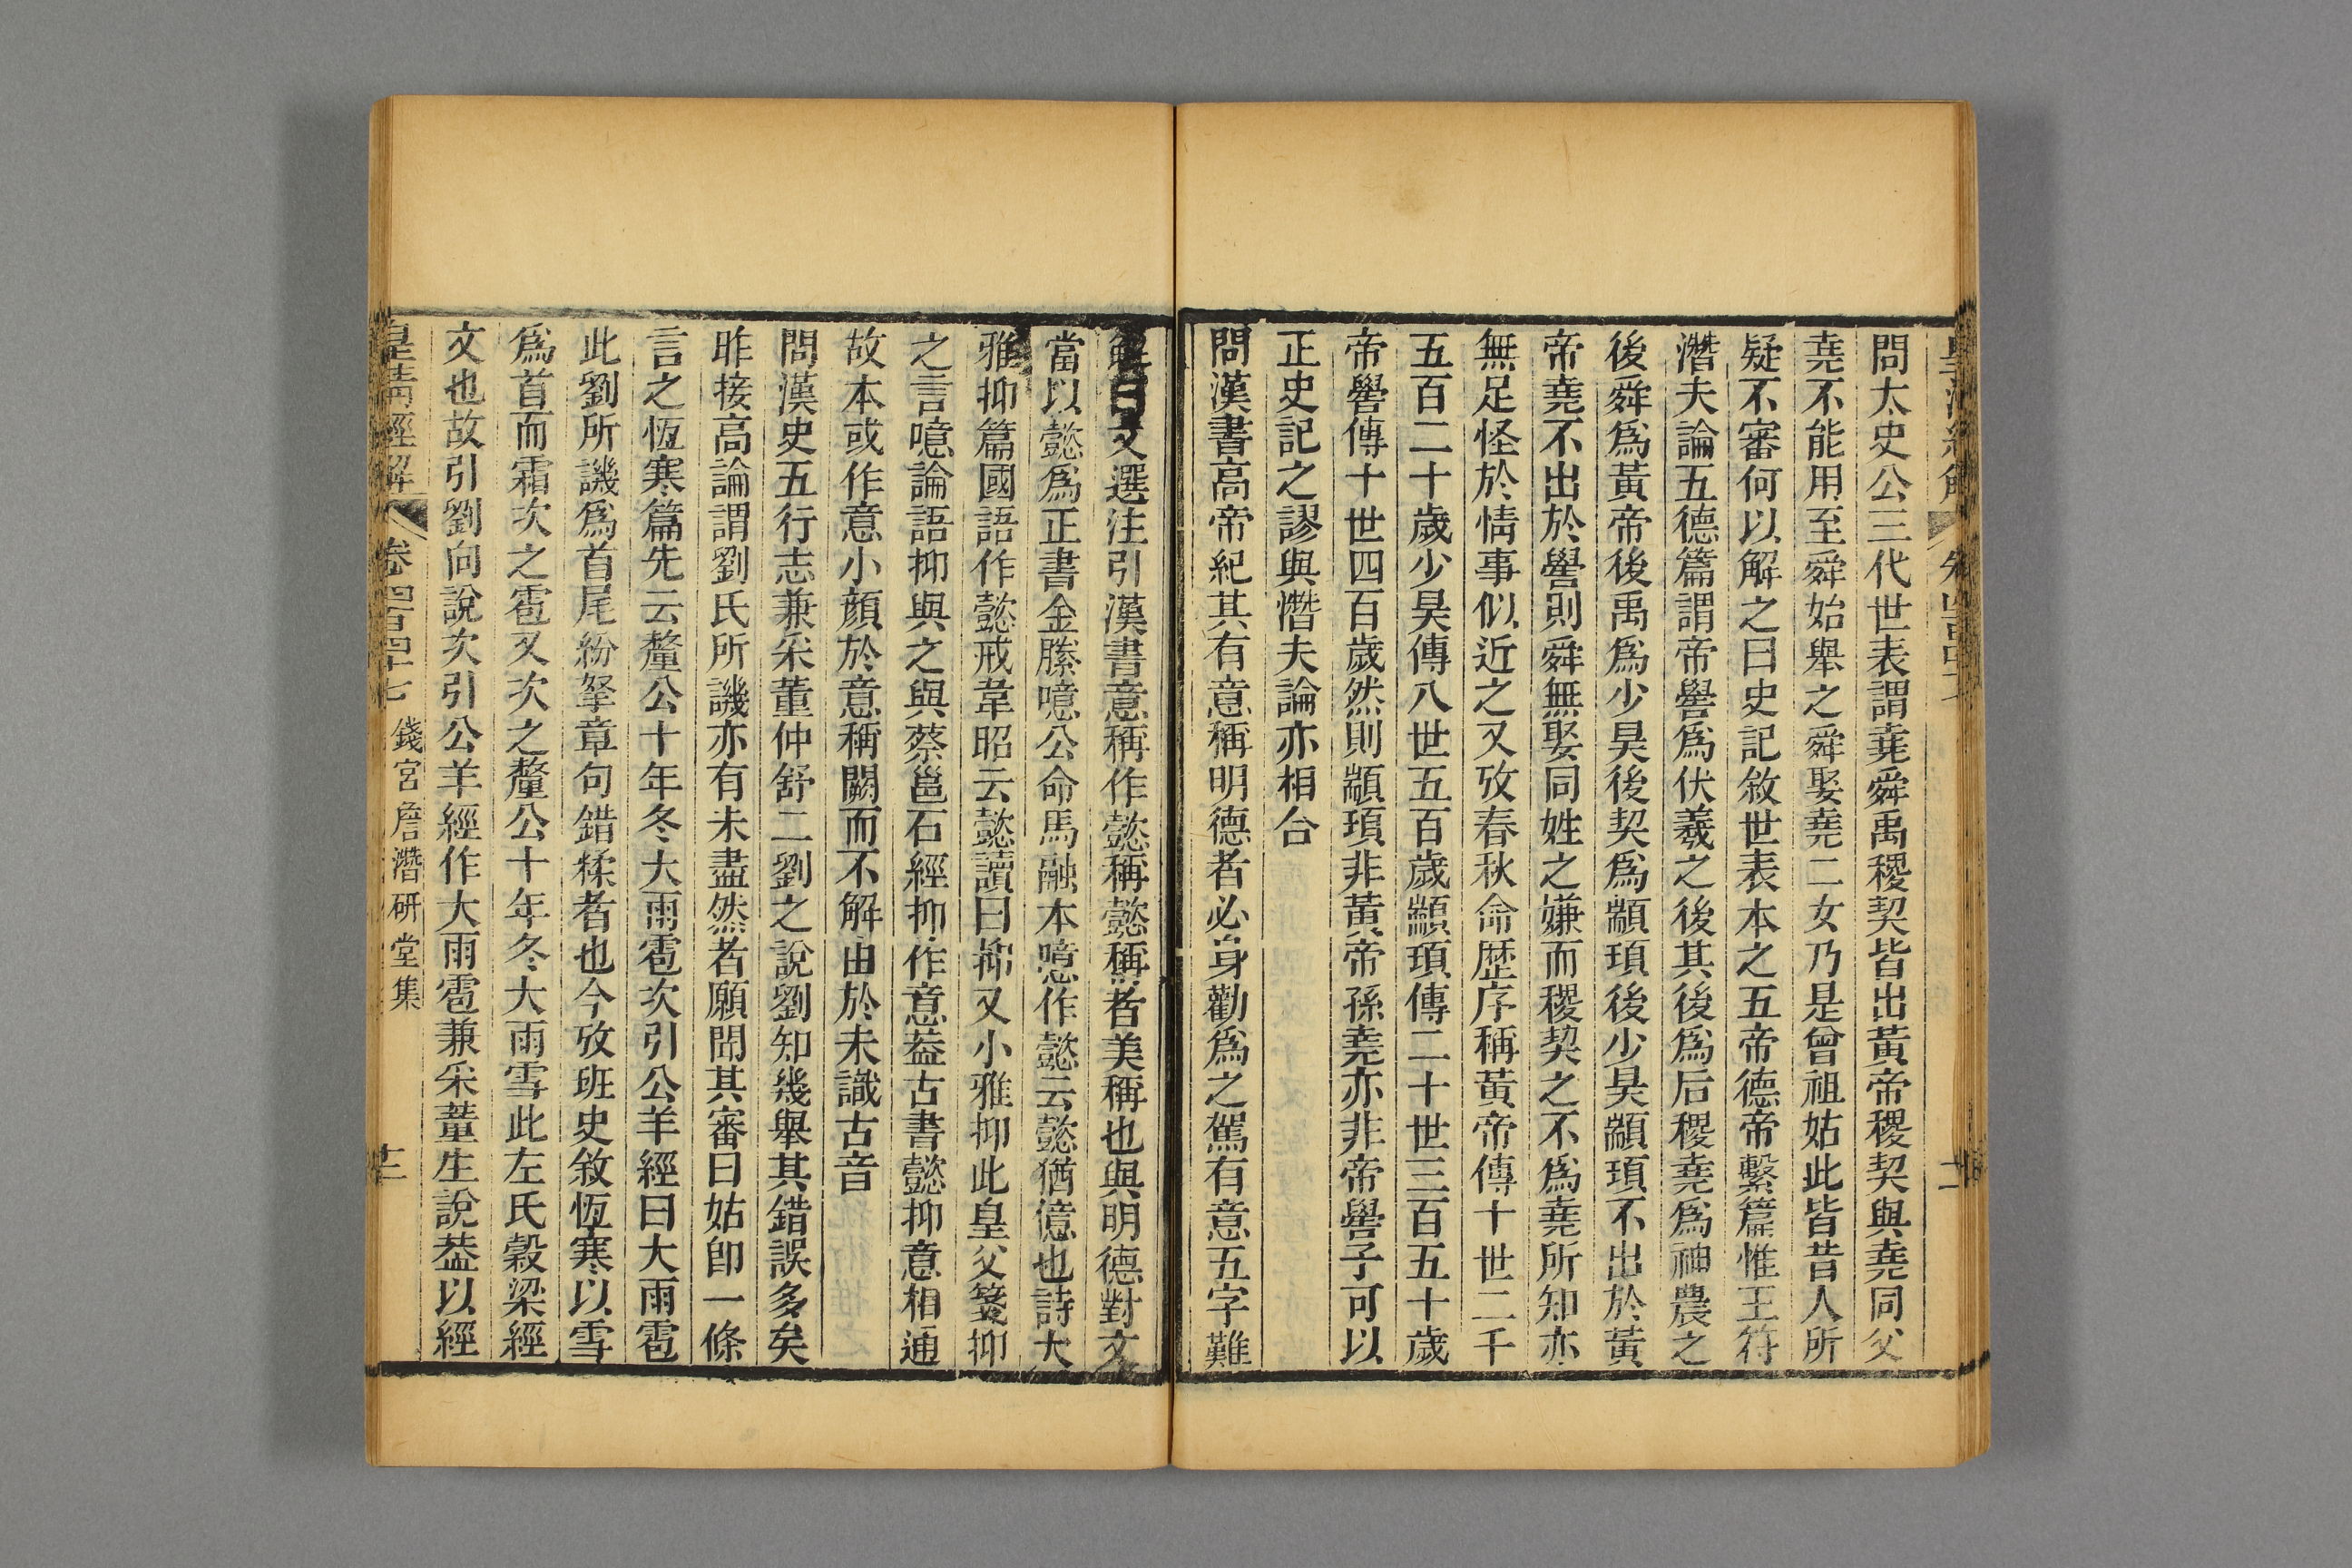 問太史公三代世表謂堯舜禹稷契皆出黃帝稷契與堯同父
堯不能用至舜始舉之舜娶堯二女乃是曾祖姑此皆昔人所
疑不審何以解之曰史記敘世表本之五帝德帝繫篇惟王符
潛夫論五德篇謂帝嚳爲伏羲之後其後爲后稷堯爲神農之
後舜爲黃帝後禹爲少昊後契爲顓頊後少昊顓頊不出於黃
帝堯不出於嚳則舜無娶同姓之嫌而稷契之不爲堯所知亦
無足怪於情事似近之又攷春秋命歴序稱黃帝傳十世二千
五百二十歲少昊傳八世五百歲顓頊傳二十世三百五十歲
帝嚳傳十世四百歲然則顓頊非黃帝孫堯亦非帝嚳子可以
正史記之謬與潛夫論亦相合
問漢書高帝紀其有意稱明德者必身勸爲之駕有意五字難
解曰文選注引漢書意稱作懿稱懿稱者美稱也與明德對文
當以懿爲正書金縢噫公命馬融本噫作懿云懿猶億也詩大
雅抑篇國語作懿戒韋昭云懿讀曰抑又小雅抑此皇父箋抑
之言噫論語抑與之與蔡邕石經抑作意葢古書懿抑意相通
故本或作意小顏於意稱闕而不解由於未識古音
問漢史五行志兼采董仲舒二劉之說劉知幾舉其錯誤多矣
昨接高論謂劉氏所譏亦有未盡然者願聞其審曰姑卽一條
言之恆寒篇先云釐公十年冬大雨雹次引公羊經曰大雨雹
此劉所譏爲首尾紛拏章句錯糅者也今攷班史敘恆寒以雪
爲首而霜次之雹又次之釐公十年冬大雨雪此左氏穀梁經
文也故引劉向說次引公羊經作大雨雹兼采董生說葢以經
皇淸經解
卷四百四十七
錢宮詹潛研堂集
十二